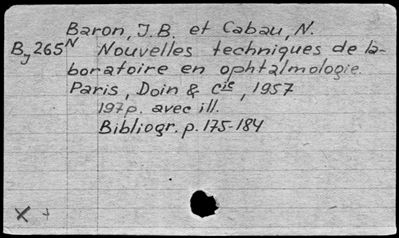 Baron, J.B. et Cabau, N.
Bj265N Nouvelles techniques de la-
boratoire en ophtalmologie.
Paris, Doin & cie, 1957
197p. avec ill.
Bibliogr. p. 175-184